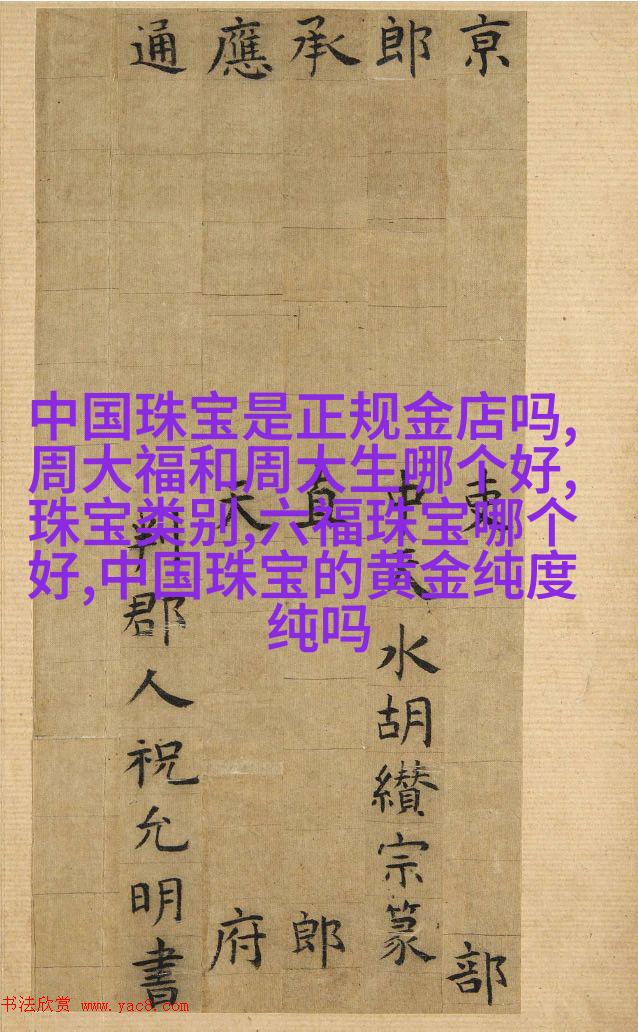 京東部
郎中天水胡纘宗篆
承直郎
應天府
通郡人祝允明書
中国珠宝是正规金店吗,
周大福和周大生哪个好,
珠宝类别,六福珠宝哪个
好,中国珠宝的黄金纯度
纯吗
书法欣赏 www.yac8.com